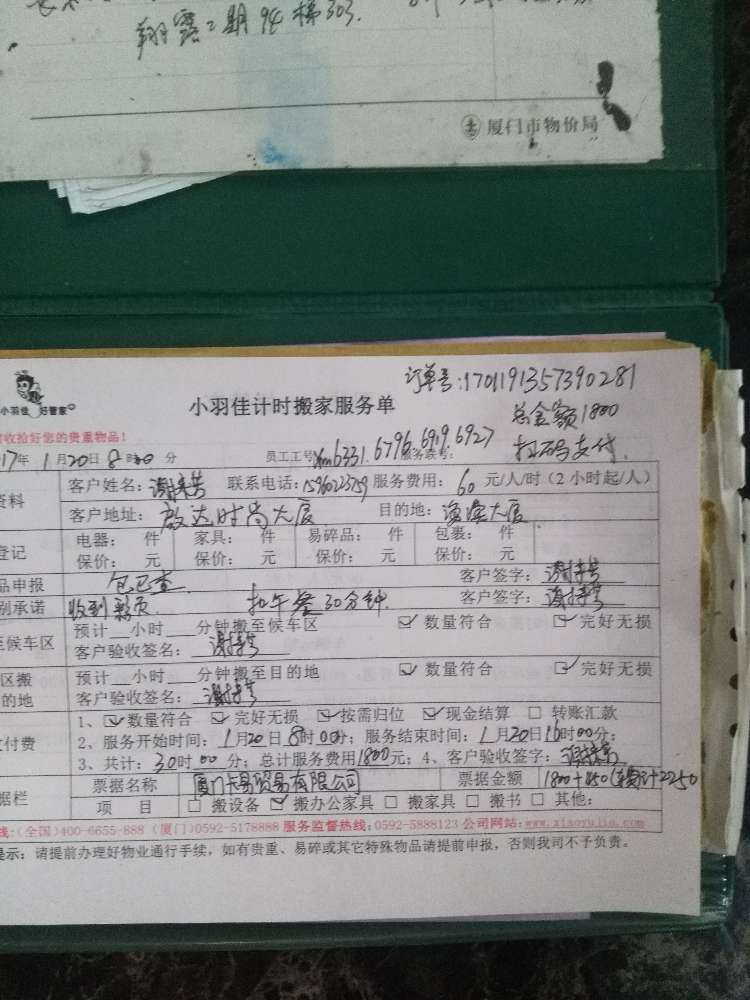 翔鹭二期94梯303.
厦门市物价局
订单号:1701191357390281
小羽佳 好管家
小羽佳计时搬家服务单
总金额1800
收拾好您的贵重物品!
扫码支付.
17年 1月20日 8时00分 员工工号 6331.6796.6909.6927
资料 客户姓名: 联系电话: 服务费用: 60 元/人/时（2小时起/人）
客户地址: 启达时尚大厦 目的地: 大厦
登记 电器: 件 家具: 件 易碎品: 件 包裹: 件
保价: 元 保价: 元 保价: 元 保价: 元
品申报 包已查 客户签字:
别承诺 收到 扣午餐30分钟. 客户签字:
至候车区 预计__小时___分钟搬至候车区 ☑ 数量符合 ☑ 完好无损
客户验收签名:
区搬 预计__小时___分钟搬至目的地 ☑ 数量符合 ☑ 完好无损
的地 客户验收签名:
付费 1、☑数量符合 ☑ 完好无损 ☑按需归位 ☑现金结算 □ 转账汇款
2、服务开始时间: 1月20日8时00分; 服务结束时间: 1月20日16时00分;
3、共计: 30时00分; 总计服务费用1800元; 4、客户验收签字:
据栏 票据名称 厦门卡易贸易有限公司 票据金额 1800+450
项 目 □ 搬设备 ☑ 搬办公家具 □ 搬家具 □ 搬书 □ 其他:
线:(全国)400-6655-888 (厦门)0592-5178888 服务监督热线:0592-5888123 公司网站:www.xiaoyujia.com
提示: 请提前办理好物业通行手续，如有贵重、易碎或其它特殊物品请提前申报，否则我司不予负责。